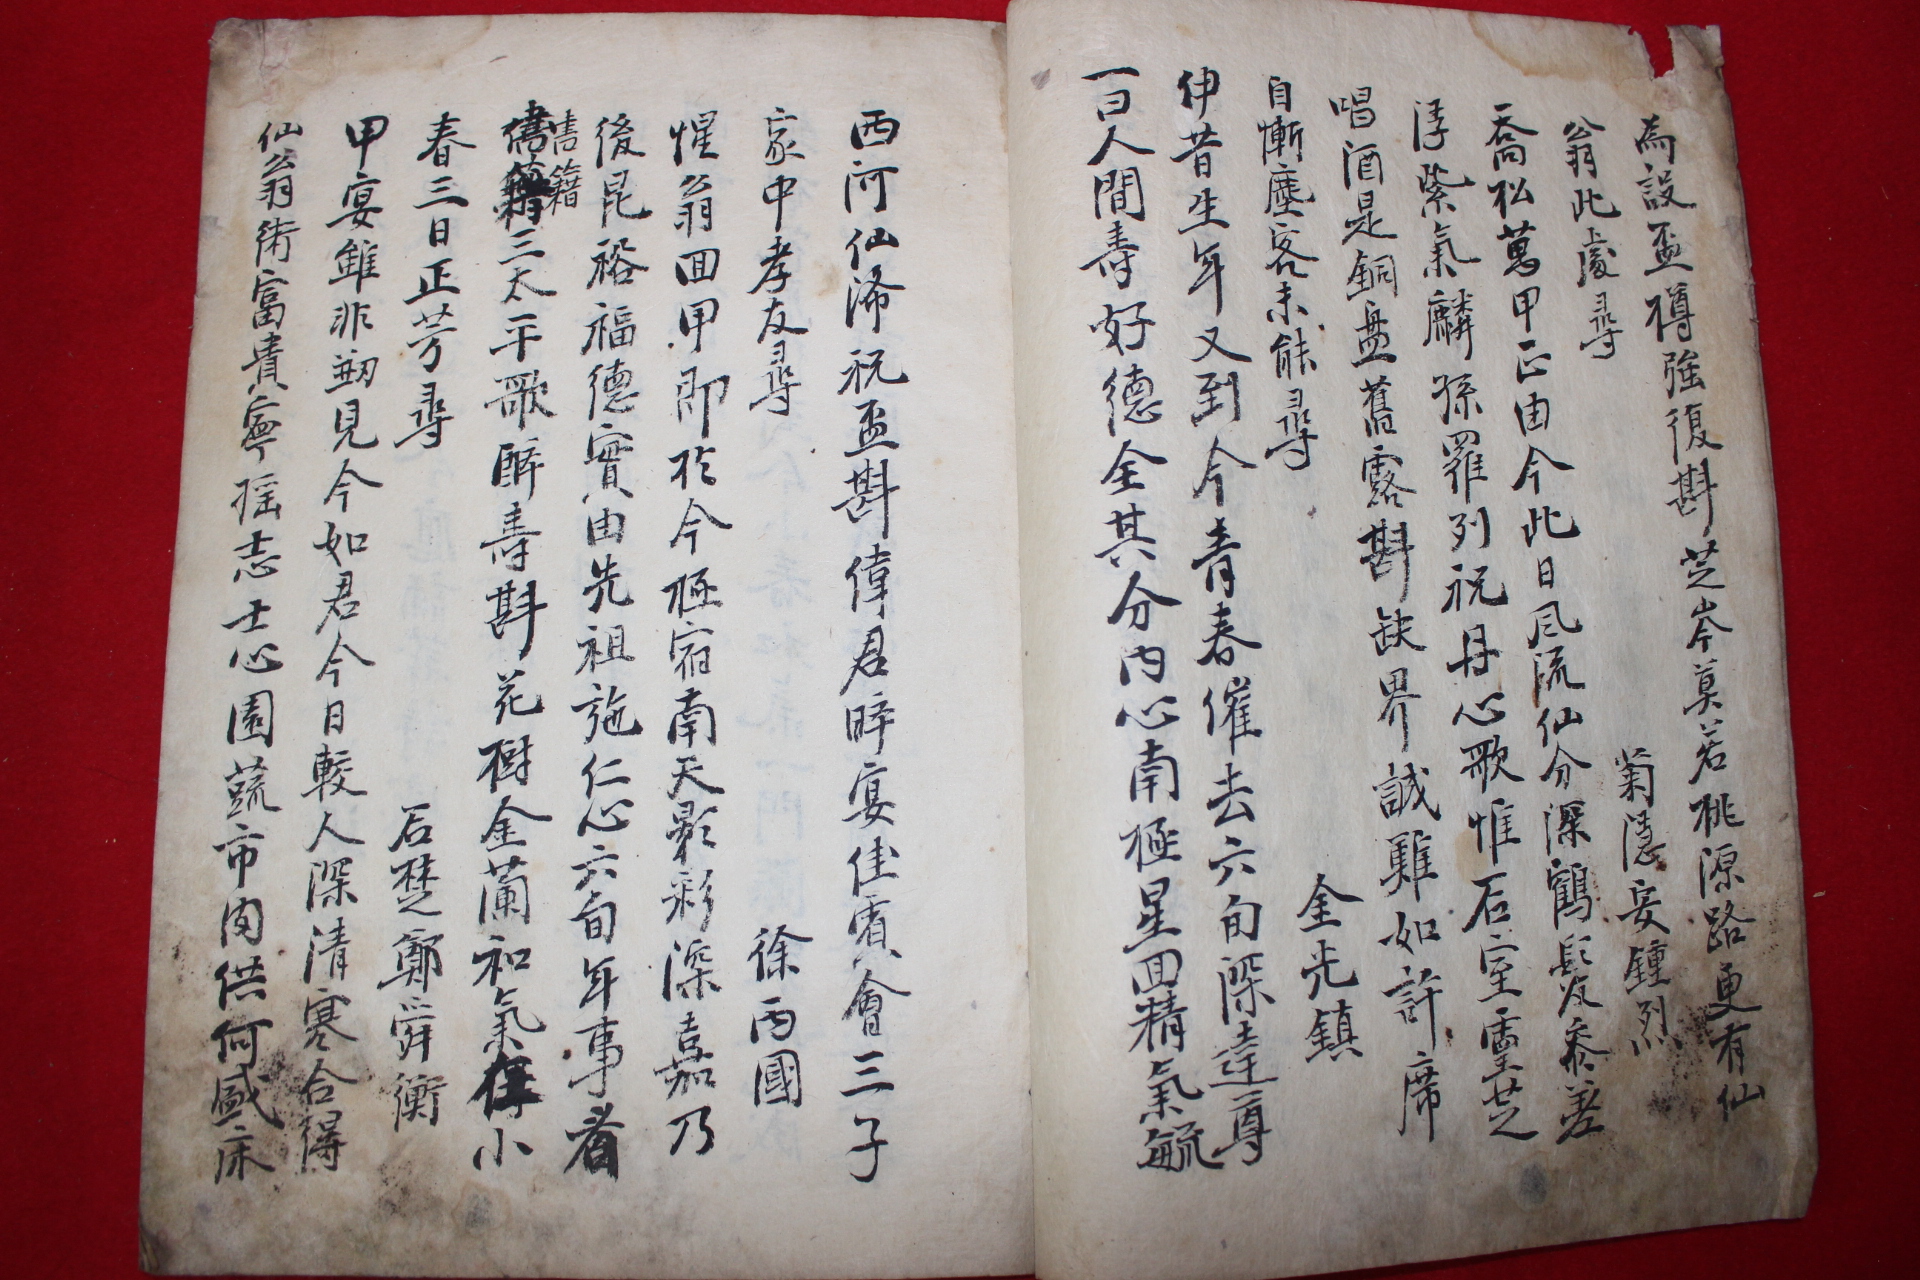 為設盃樽強復斟芝岑莫若桃源路更有仙
翁此處尋
菊隱安鍾烈
喬松萬甲正由今此日風流仙分深鶴髮忝差
浮紫氣麟孫羅列祝丹心歌惟石室靈芝
唱酒是銅盘舊露斟缺界誠難如許席
自慚塵客未能尋
金光鎮
伊昔生年又到今青春催去六旬深達尊
一曰人間壽好德全其分內心南極星回精氣毓
西河仙浠祝盃斟偉君晬宴佳賓會三子
家中孝友尋
徐丙國
惺翁回甲即於今極宿南天影彩深嘉乃
後昆裕福德實由先祖施仁心六旬年事者
書籍
三太平歌醉壽斟花樹金蘭和氣 小
春三日正芳尋
石楚鄭舜衡
甲宴雖非刱見今如君今日較人深清寒合得
仙翁術富貴寧摇志士心園蔬市肉供何盛床